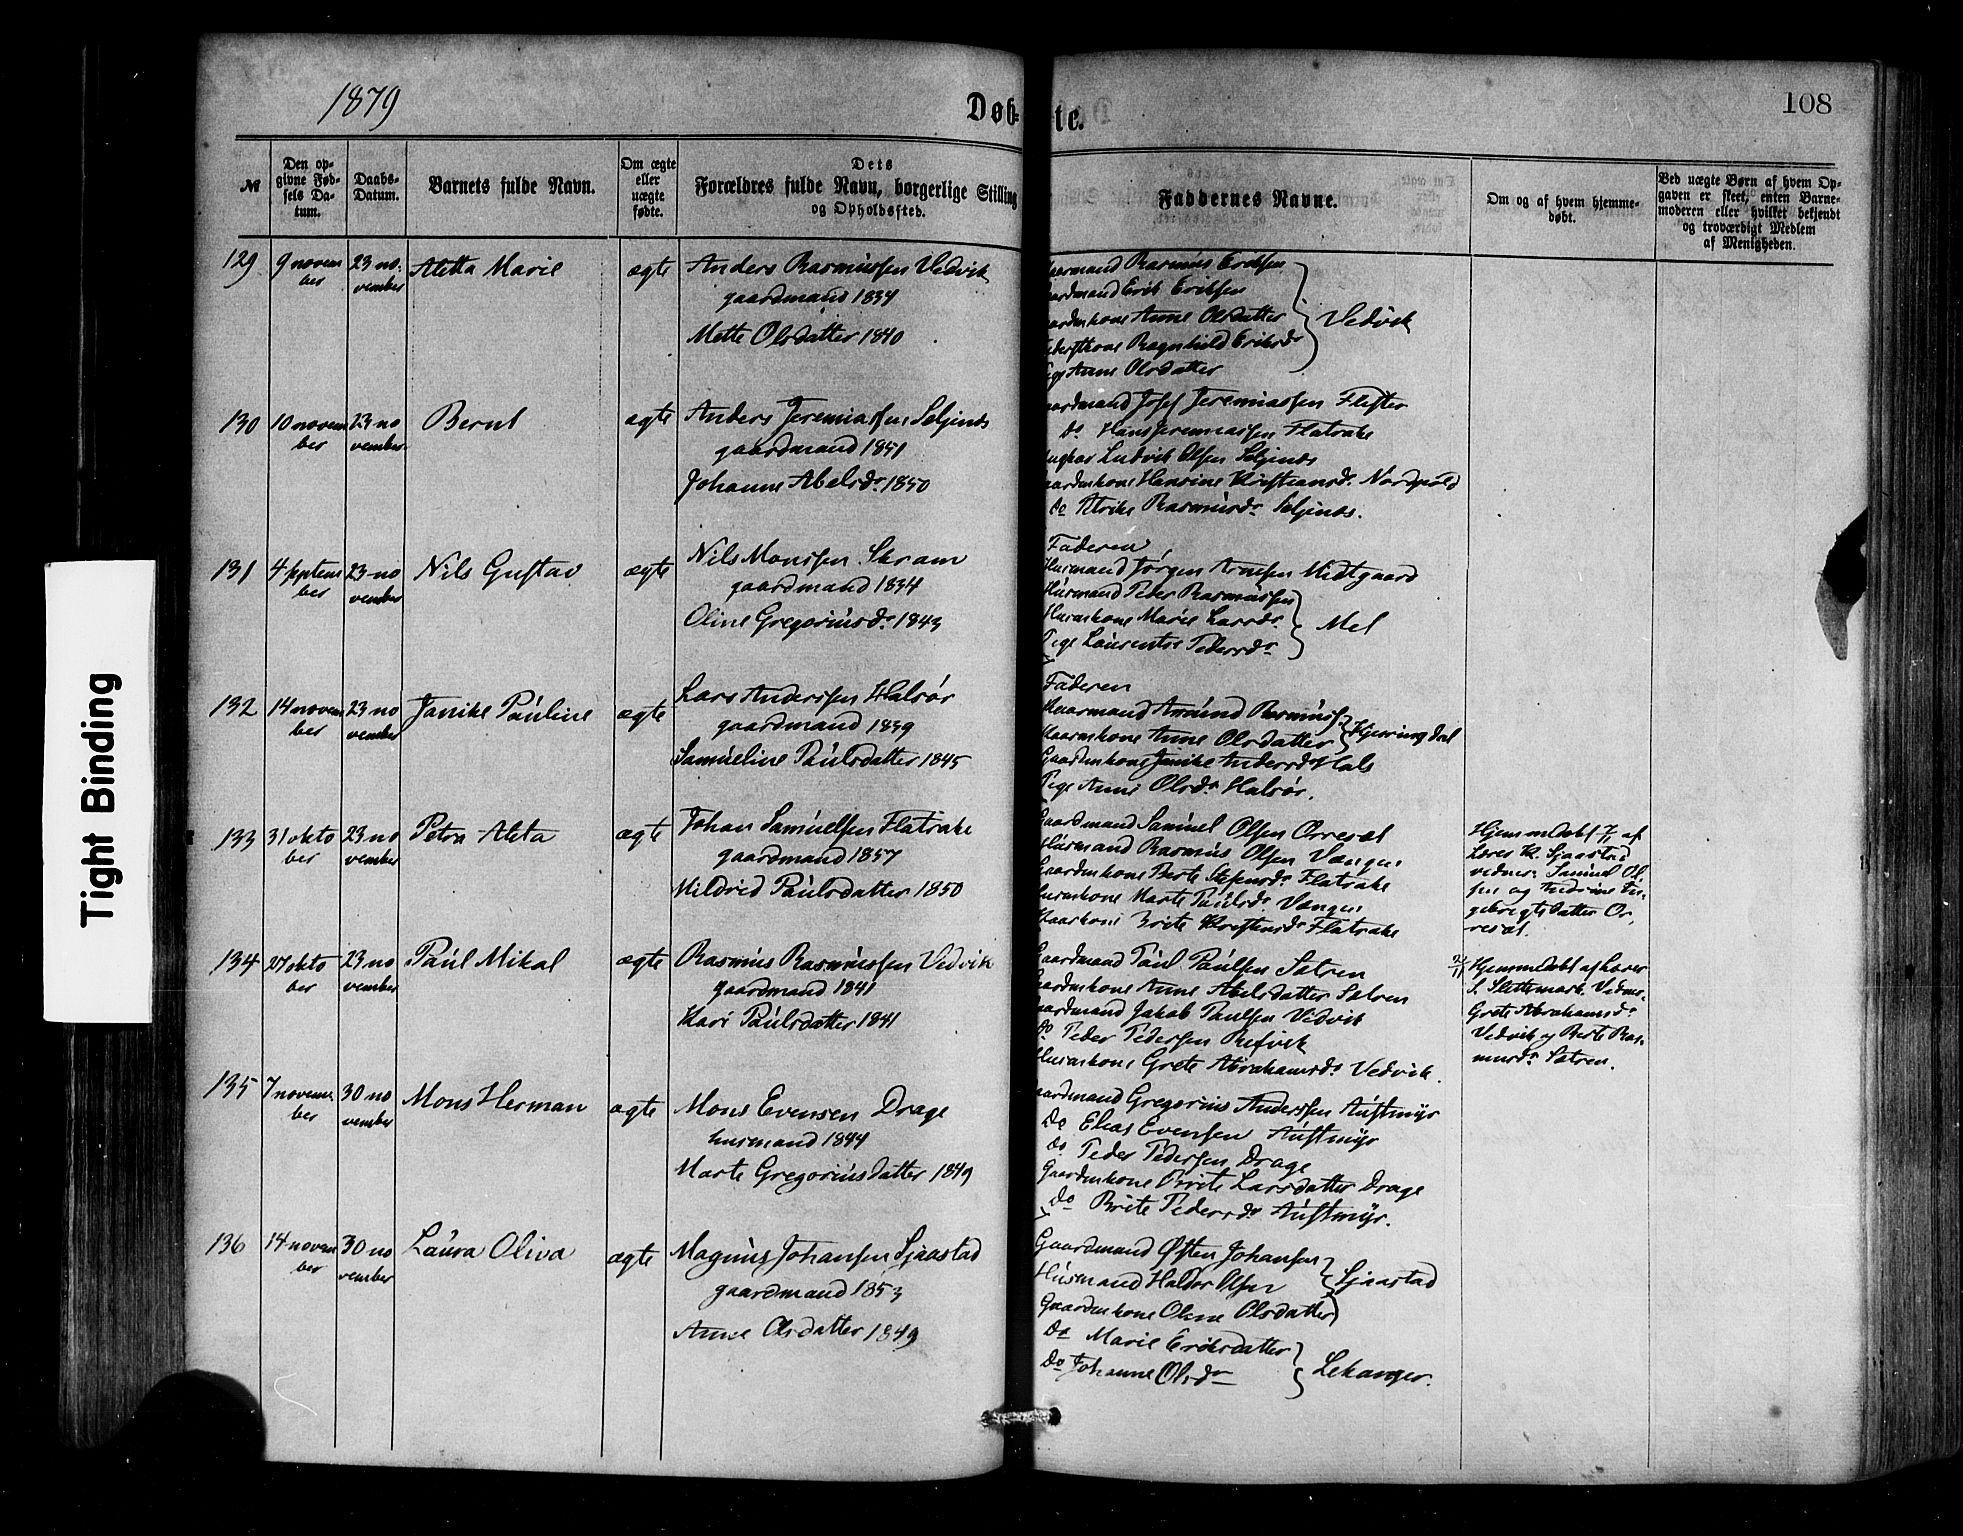 1879
Døb-
te.
108
Tight Binding
№
Den op-
givne Fød-
sels Da-
tum.
Daabs-
Datum.
Barnets fulde Navn.
Om ægte
eller
uægte
fødte.
Dets
Forældres fulde Navn, borgerlige Stilling
og Opholdssted.
Faddernes Navne.
Om og af hvem hjemme-
døbt.
Ved uægte Børn af hvem Op-
gaven er skeet, enten Barne-
moderen eller hvilket bekjendt
og troværdigt Medlem
af Menigheden.
129 9 novem 23 no- Aletta Marie ægte Anders Rasmussen Vedvik
ber vember gaardmand 1834
Mette Olsdatter 1840
aarmand Rasmus Eriksen
ardmand Erik Eriksen
ardmkone Anne Olsdatter Vedvik
Ragnhild Eriksdr
Anne Olsdatter
130 10 novem 23 no Bernt ægte Anders Jeremiassen Seljenes
ber vember gaardmand 1851
Johanne Abelsdr 1850
ardmand Josef Jeremiassen
do Hans Jeremiassen Flatrake
ungkar Ludvik Olsen Seljenes
ardmkone Hansine Kristiansdr Nordpold
do Alrike Rasmusdr Seljenes.
131 4 septem 23 no Nils Gustav ægte Nils Monssen Skram
ber vember gaardmand 1834
Oline Gregoriusdr 1843
Faderen
Husmand Jørgen Arnesen Midtgaard
Husmand Peder Rasmussen
Husmkone Marie Larsdr Mel
Pige Laurentse Pedersdr
132 14 novem 23 no Janike Pauline ægte Lars Anderssen Halsør
ber vember gaardmand 1839
Samueline Paulsdatter 1845
Faderen
Kaarmand Amund Rasmuss.
Kaarmkone Anne Olsdatter Hjøringdal
Gaardmkone Janike Andersdr Hals
Pige Anne Olsdr Halsør.
133 31 okto 23 no Petra Aleta ægte Johan Samuelsen Flatrake
ber vember gaardmand 1857
Mildrid Paulsdatter 1850
Gaardmand Samuel Olsen Orresæt
Husmand Rasmus Olsen Vængen
Gaardmkone Berte Stefensdr Flatrake
Husmkone Marte Paulsdr Vængen
Kaarkone Brite Kristensdr Flatrake
Hjemmedøbt 7/11 af
Lærer K. Sjaastad
vidner: Samuel Ol-
sen og Andrine In-
gebrigtsdatter Or-
resæt.
134 27 okto 23 no Paul Mikal ægte Rasmus Rasmussen Vedvik
ber vember gaardmand 1841
Kari Paulsdatter 1841
Gaardmand Paul Paulsen Satren
ardmkone Anne Abelsdatter Satren
ardmand Jakob Paulsen Vedvik
do Peder Pedersen Refvik
Husmkone Grete Abrahamsdr Vedvik.
2/11 Hjemmedøbt af Lærer
S. Slettemark. Vidne.
Grete Abrahamsdr
Vedvik og Berte Ras-
musdr Satren.
135 7 novem 30 no Mons Herman ægte Mons Evensen Drage
ber vember husmand 1844
Marte Gregoriusdatter 1849
ardmand Gregorius Anderssen Austmyr
do Elias Evensen Austmyr
do Peder Pedersen Drage
Gaardmkone Brite Larsdatter Drage
do Brite Pedersdr Austmyr.
136 14 novem 30 no Laura Oliva ægte Magnus Johansen Sjaastad
ber vember gaardmand 1853
Anne Olsdatter 1849
Gaardmand Østen Johansen
Husmand Haldor Olsen Sjaastad
Gaardmkone Oline Olsdatter
do Marie Eriksdatter
do Johanne Olsdr Lekanger.